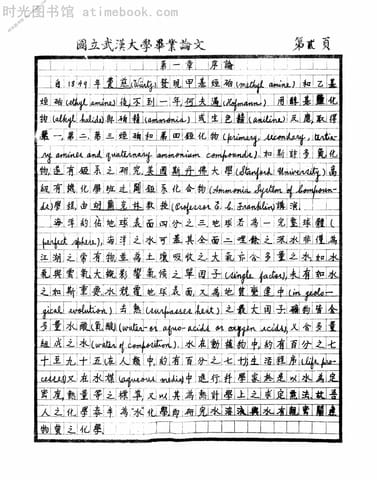 时光图书馆 atimebook.com
國立武漢大學畢業論文 第貳頁
第一章 序論
自1849年 (Wurtz) 發現甲基烴𨥙(methyl amine)和乙基
(ethyl amine)後,不到一年,何夫邁(Hofmann) 用醇基鹽化
物(alkyl halide)與硝精(ammonia)或生色精(aniline)反應,取得
第一,第二,第三烴 和第四銨化物(primary, secondary, tertia-
ry amines and quaternary ammonium compounds).如斯計多氮化
物,遂有 系之研究.美國斯丹佛大學(Stanford University)高
級有機化學班,近開 系化合物(Ammonia System of Compoun-
ds)學程,由 教授(Professor E. C. Franklin)講演.
海洋約佔地球表面四分之三,地球若為一完整球體(
perfect sphere),海洋之水可蓋其全面二哩餘之深.水非僅為
江湖之含有物,並為土壤吸收之,大氣亦含多量之水.如水
氣與雲,乃大概影響氣候之單因子(single factor),未有如水
之和斯重要.水覆地球表面,又為地質變遷中(in geolo-
gical evolution).去熱(surpasses heat)之最大因子.礦物皆含
多量水酸(氧酸)(water- or aquo-acids or oxygen acids),又含多量
組成之水(water of composition).水在動植物中,約有百分之七
十至九十五.在人類中,約有百分之七十.生活程序(life pro-
cesses)又在水媒(aqueous media)中進行.科學家於是以水為定
密度,熱量等之標準.又以其為熱計學上之法.故吾
人之化學泰半為水化學,即研究水溶液與水有親密關連
物質之化學.